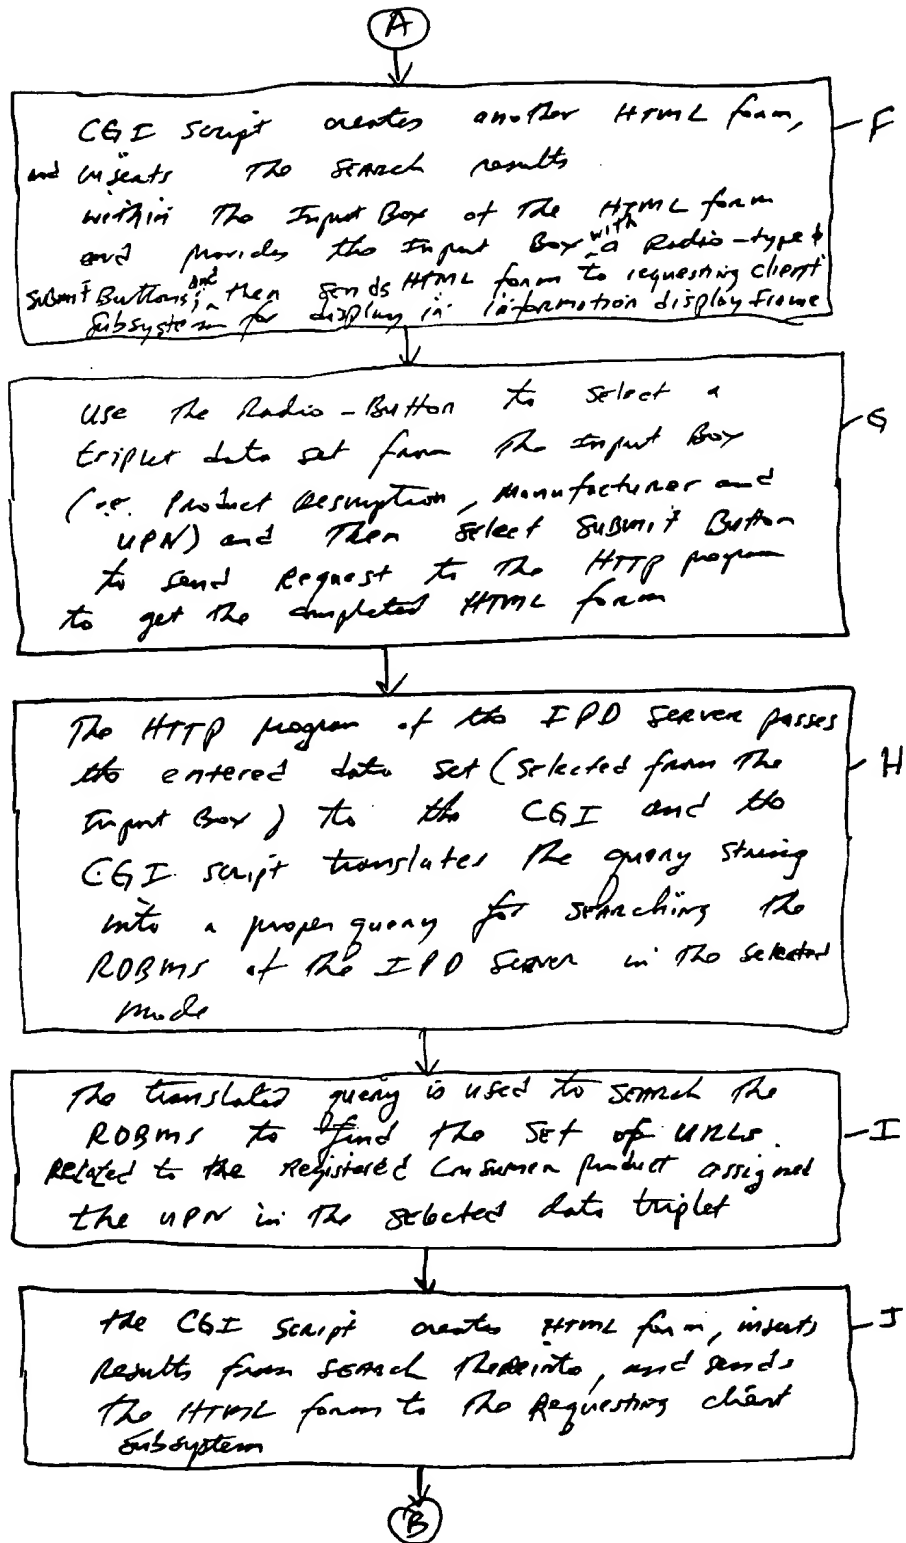 A
CGI Script creates another HTML form, F
and inserts the search results
within the Input Box of the HTML form
and provides the Input Box with a Radio-type &
Submit Buttons; and then sends HTML form to requesting client
subsystem for display in information display frame
Use the Radio-Button to select a
triplet data set from the Input Box G
(i.e. Product Description, Manufacturer and
UPN) and Then select Submit Button
to send Request to the HTTP program
to get the completed HTML form
The HTTP program of the IPD Server passes
the entered data set (selected from The H
Input Box) to the CGI and the
CGI script translates the query string
into a proper query for searching the
RDBMS of the IPD Server in the selected
mode
The translated query is used to search the
RDBMS to find the set of URLs I
Related to the Registered Consumer product assigned
the UPN in the selected data triplet
the CGI Script creates HTML form, inserts J
results from search thereinto, and sends
the HTML form to the Requesting client
subsystem
B